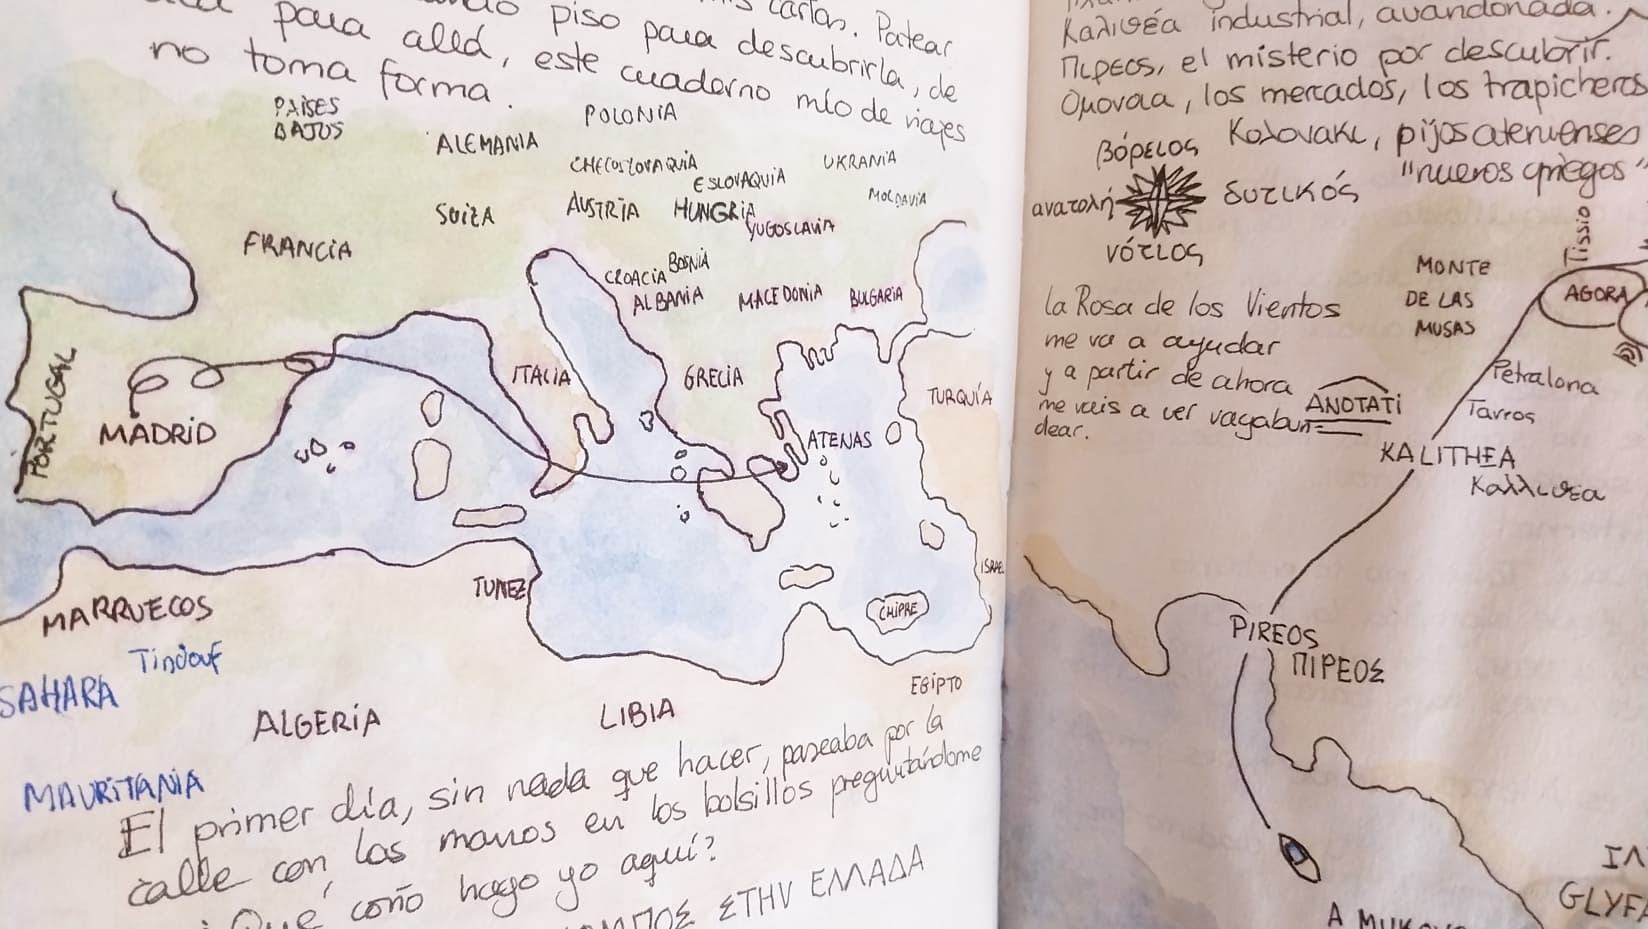 piso para descubrirla, de
para allá, este cuaderno mío de viajes
no toma forma.
PAÍSES
BAJOS
ALEMANIA
POLONIA
CHECOSLOVAQUIA
ESLOVAQUIA
UKRANIA
MOLDAVIA
SUIZA
AUSTRIA
HUNGRIA
YUGOSLAVIA
FRANCIA
CROACIA
BOSNIA
ALBANIA
MACEDONIA
BULGARIA
PORTUGAL
MADRID
ITALIA
GRECIA
TURQUÍA
ATENAS
TUNEZ
ISRAEL
CHIPRE
MARRUECOS
Tindouf
SAHARA
ALGERIA
LIBIA
EGIPTO
MAURITANIA
El primer día, sin nada que hacer, paseaba por la
calle con las manos en los bolsillos preguntándome
¿Qué coño hago yo aquí?
ΣΤΗΝ ΕΛΛΑΔΑ
cartas. Patear
Καλιθέα industrial, avandonada.
Πιρεος, el misterio por descubrir.
Ομονοια, los mercados, los trapicheros
Κολονακι, pijos atenienses
"nuevos griegos"
βόρειος
ανατολή
δυτικός
νότιος
la Rosa de los Vientos
me va a ayudar
y a partir de ahora
me vais a ver vagabun=
dear.
MONTE
DE LAS
MUSAS
Tissio
AGORA
Petralona
Tavros
ANOTATI
KALITHEA
Καλλιθεα
PIREOS
ΠΙΡΕΟΣ
GLYFA